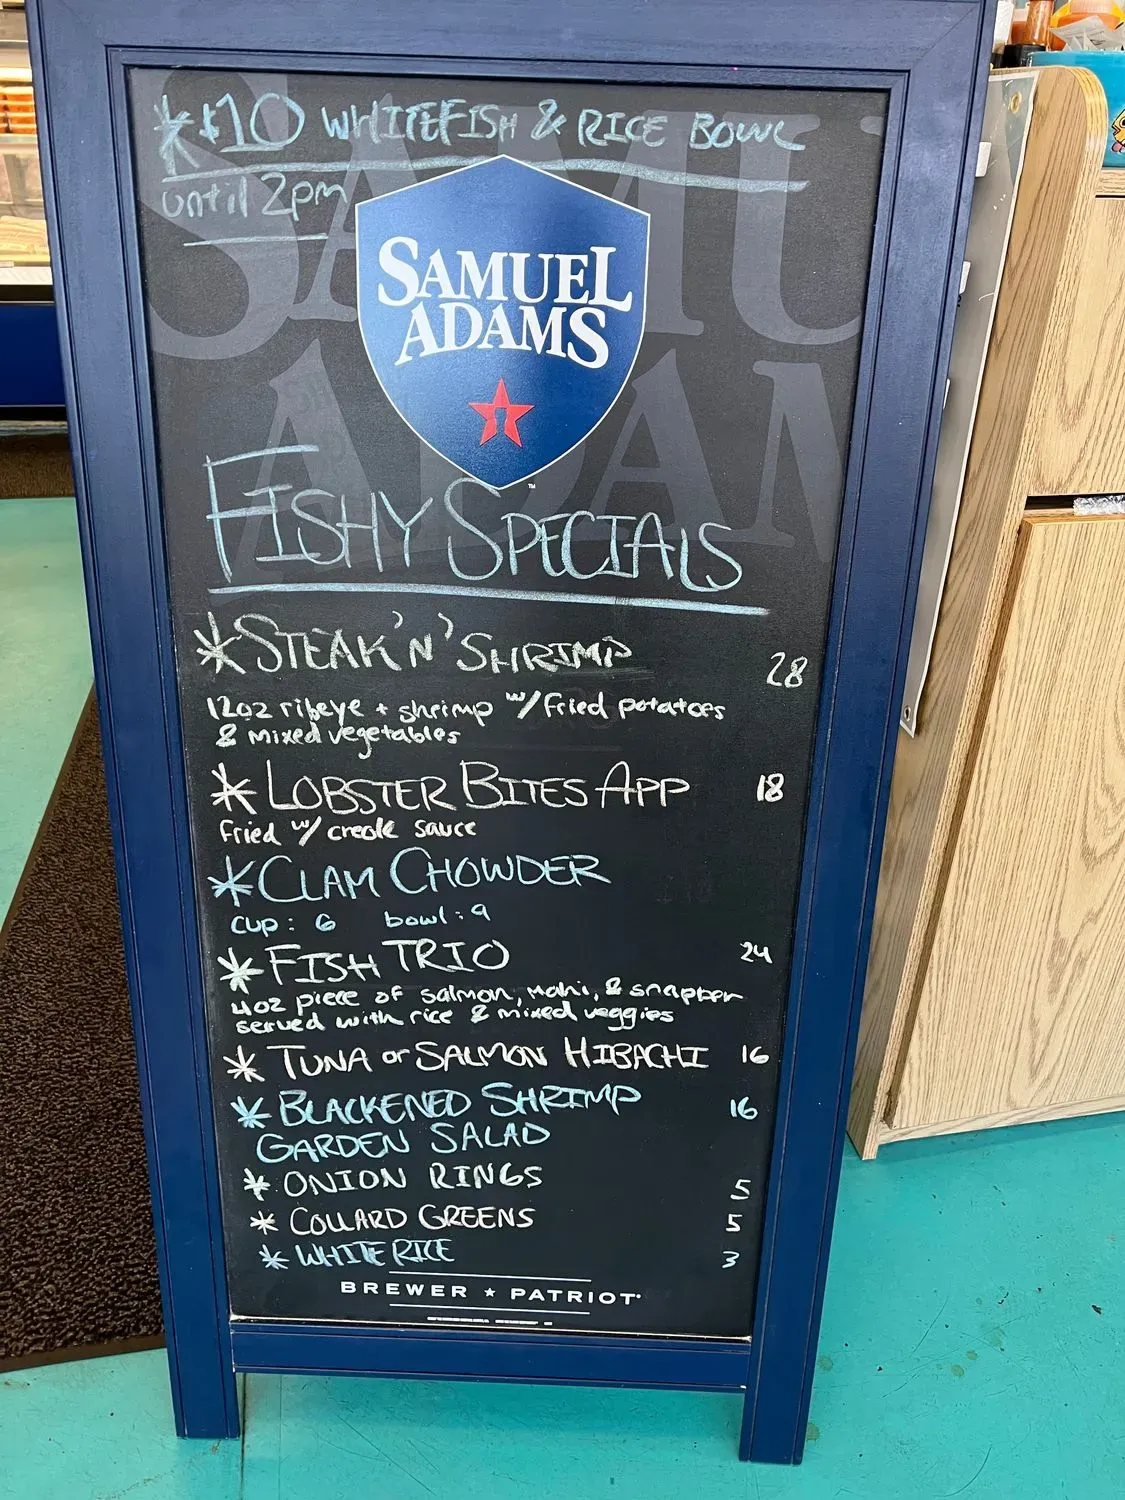 *$10 WHITEFISH & RICE BOWL
until 2pm
SAMUEL
ADAMS
FISHY SPECIALS
*STEAK 'N' SHRIMP 28
12oz ribeye + shrimp w/ fried potatoes
& mixed vegetables
*LOBSTER BITES APP 18
fried w/ creole sauce
*CLAM CHOWDER
cup: 6 bowl: 9
*FISH TRIO 24
4oz piece of salmon, mahi, & snapper
served with rice & mixed veggies
*TUNA or SALMON HIBACHI 16
*BLACKENED SHRIMP 16
GARDEN SALAD
*ONION RINGS 5
*COLLARD GREENS 5
*WHITE RICE 3
BREWER ★ PATRIOT